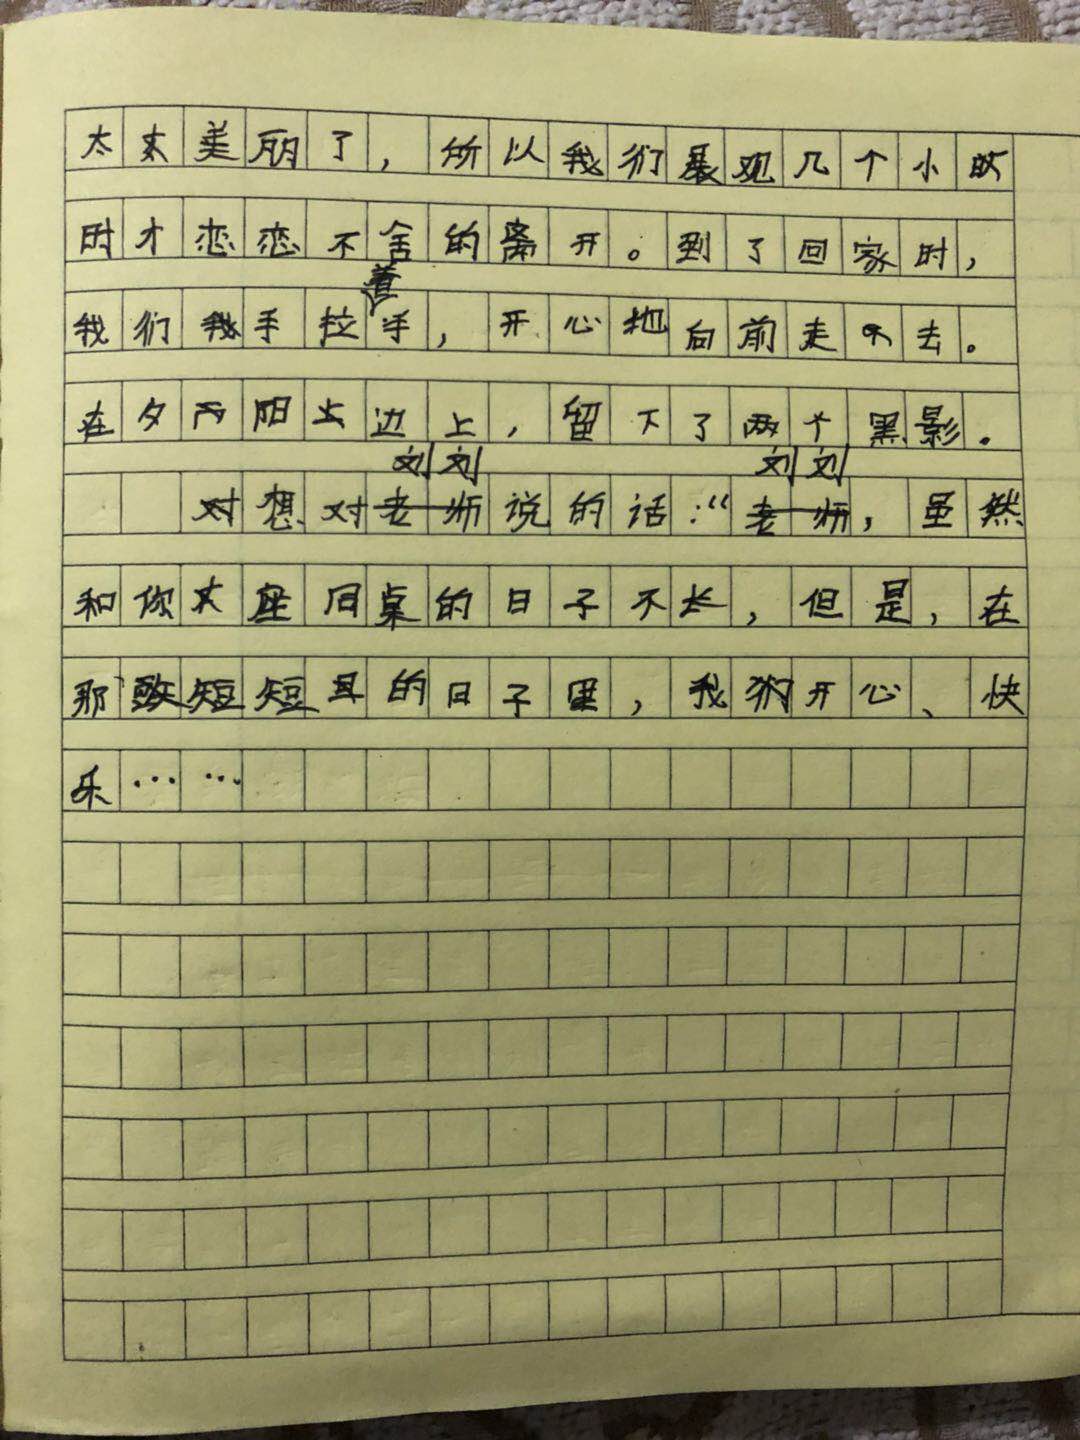 太美丽了，所以我们观几个小
时才恋恋不舍的离开。到了回家时，
我们手拉着手，开心地向前走去。
在夕阳边上，留下了两个黑影。
想对刘刘说的话：“刘刘，虽然
和你座同桌的日子不长，但是，在
那短短的日子里，我们开心、快
乐……